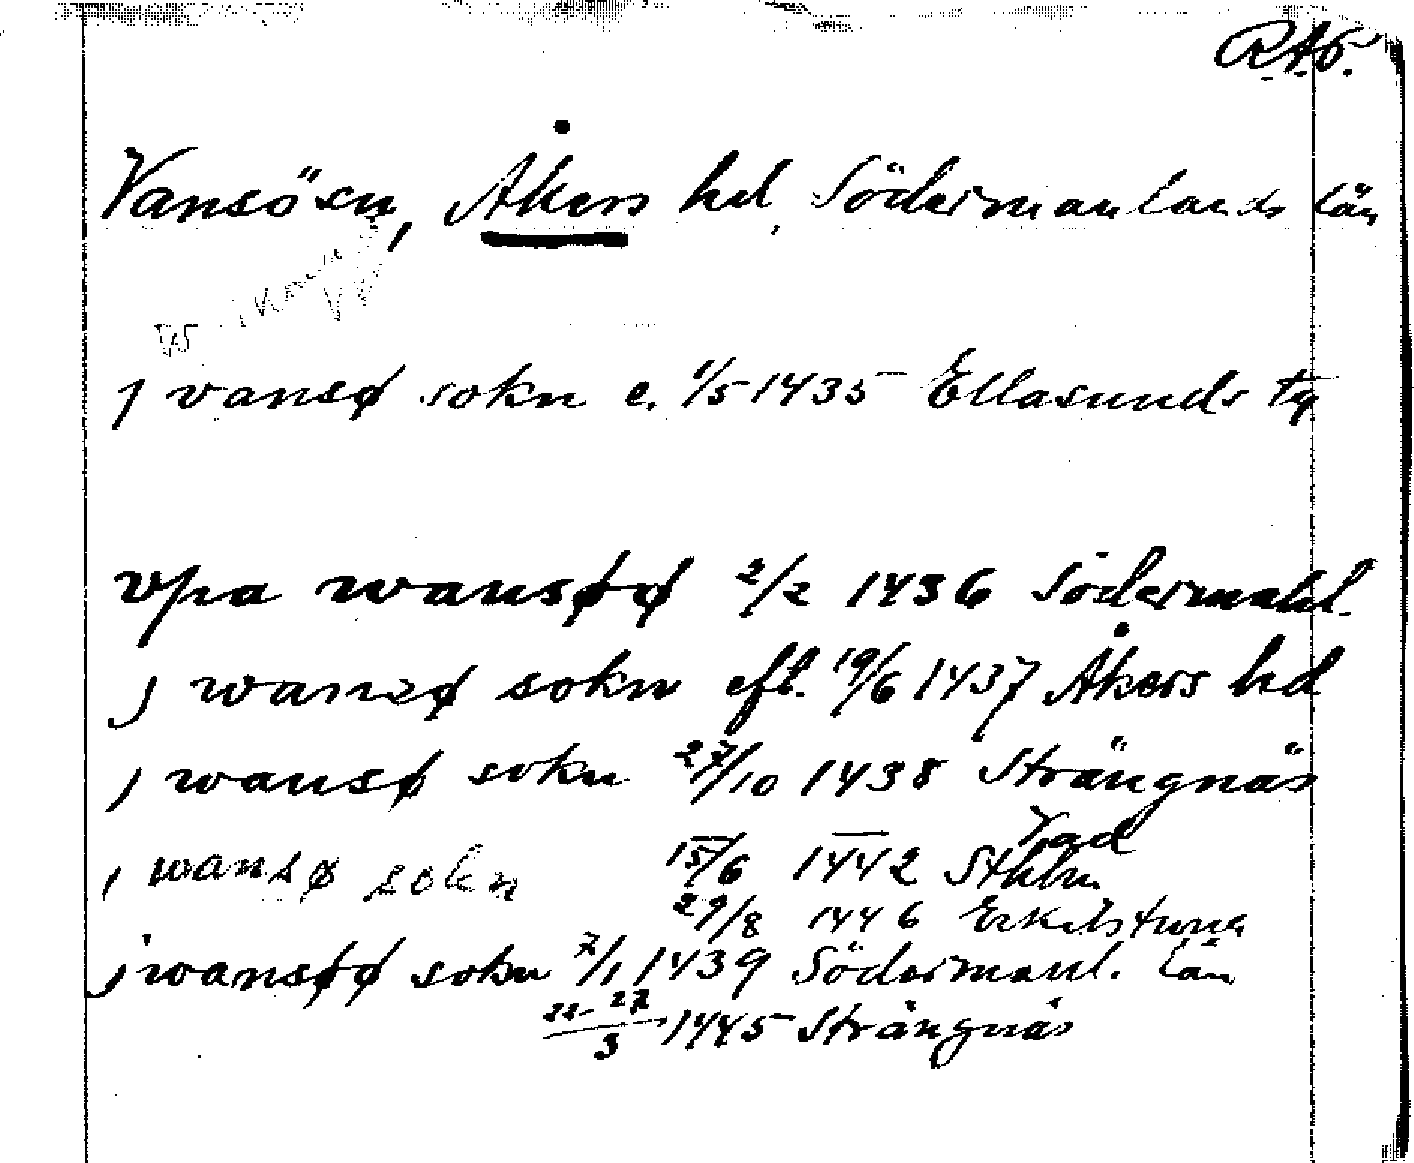 R.A.Ö.
Vansö sn, Åkers hd, Södermanlands län
j vansø sokn e. 1/5 1435 Ellasunds tg
vpa wansøø 2/2 1436 Södermanl.
j wansø sokn eft. 19/6 1437 Åkers hd
j wansø sokn 27/10 1438 Strängnäs
j wansø sokn 15/6 1442 Sthlm
29/8 1446 Eskilstuna
j wansøø sokn 7/1 1439 Södermanl. län
22-27/3 1445 Strängnäs